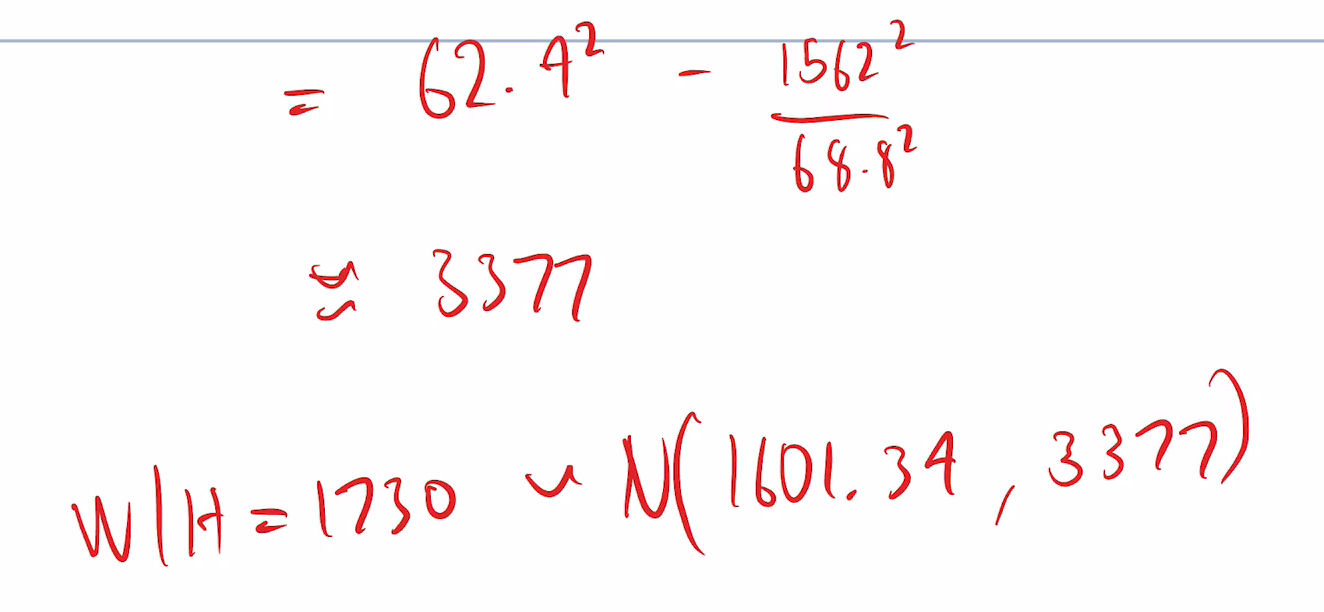 = 62.4² - 1562²/68.8²
≈ 3377
W|H = 1730 ~ N(1601.34, 3377)